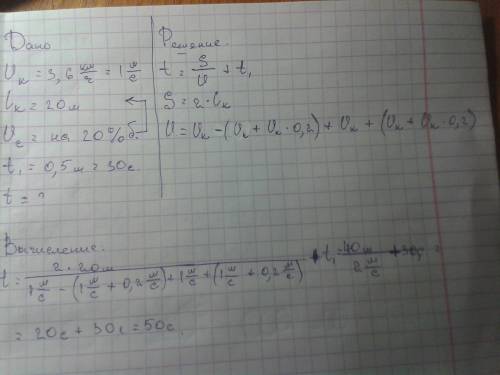 Дано
V_к = 3,6 км/ч = 1 м/с
l_к = 20 м
V_с = на 20% б.
t₁ = 0,5 м = 30 с.
t = ?
Решение.
t = S/V + t₁
S = 2·l_к
V = V_к − (V_к + V_к · 0,2) + V_к + (V_к + V_к · 0,2)
Вычисление.
t = 2·20м / (1 м/с − (1 м/с + 0,2 м/с) + 1 м/с + (1 м/с + 0,2 м/с)) + t₁ = 40м / 2 м/с + 30с =
= 20с + 30с = 50с.